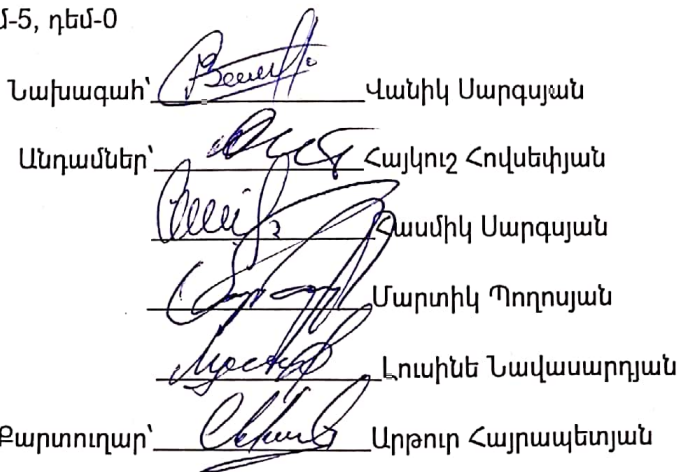 մ-5, դեմ-0
Նախագահ՝ Վանիկ Սարգսյան
Անդամներ՝ Հայկուշ Հովսեփյան
Հասմիկ Սարգսյան
Մարտիկ Պողոսյան
Լուսինե Նավասարդյան
Քարտուղար՝ Արթուր Հայրապետյան